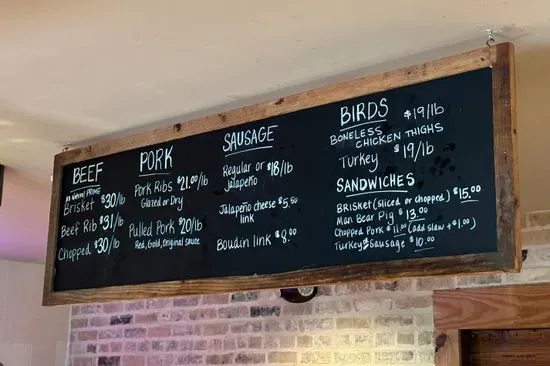 BEEF
All Natural PRIME
Brisket $30/lb
Beef Rib $31/lb
Chopped $30/lb
PORK
Pork Ribs $21.00/lb
Glazed or Dry
Pulled Pork $20/lb
Red, Gold, Original sauce
SAUSAGE
Regular or $18/lb
Jalapeño
Jalapeño cheese $5.50
link
Boudin link $8.00
BIRDS
BONELESS $19/lb
CHICKEN THIGHS
Turkey $19/lb
SANDWICHES
BRISKET (sliced or chopped) $15.00
Man Bear Pig $13.00
Chopped Pork $11.00 (add slaw +$1.00)
Turkey & Sausage $10.00